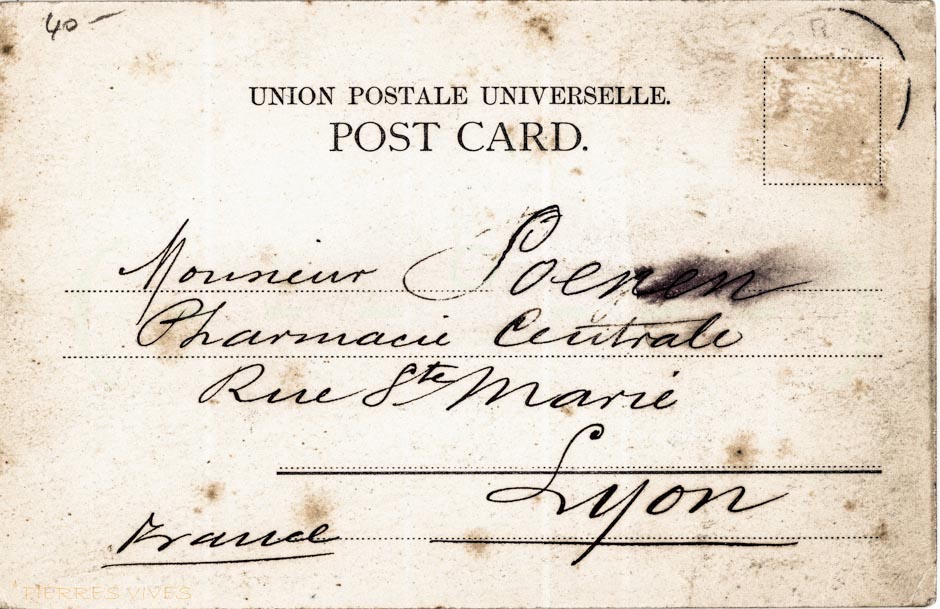 40-
R
UNION POSTALE UNIVERSELLE.
POST CARD.
Monsieur
Pharmacie Centrale
Rue Ste Marie
Lyon
France
PIERRES VIVES